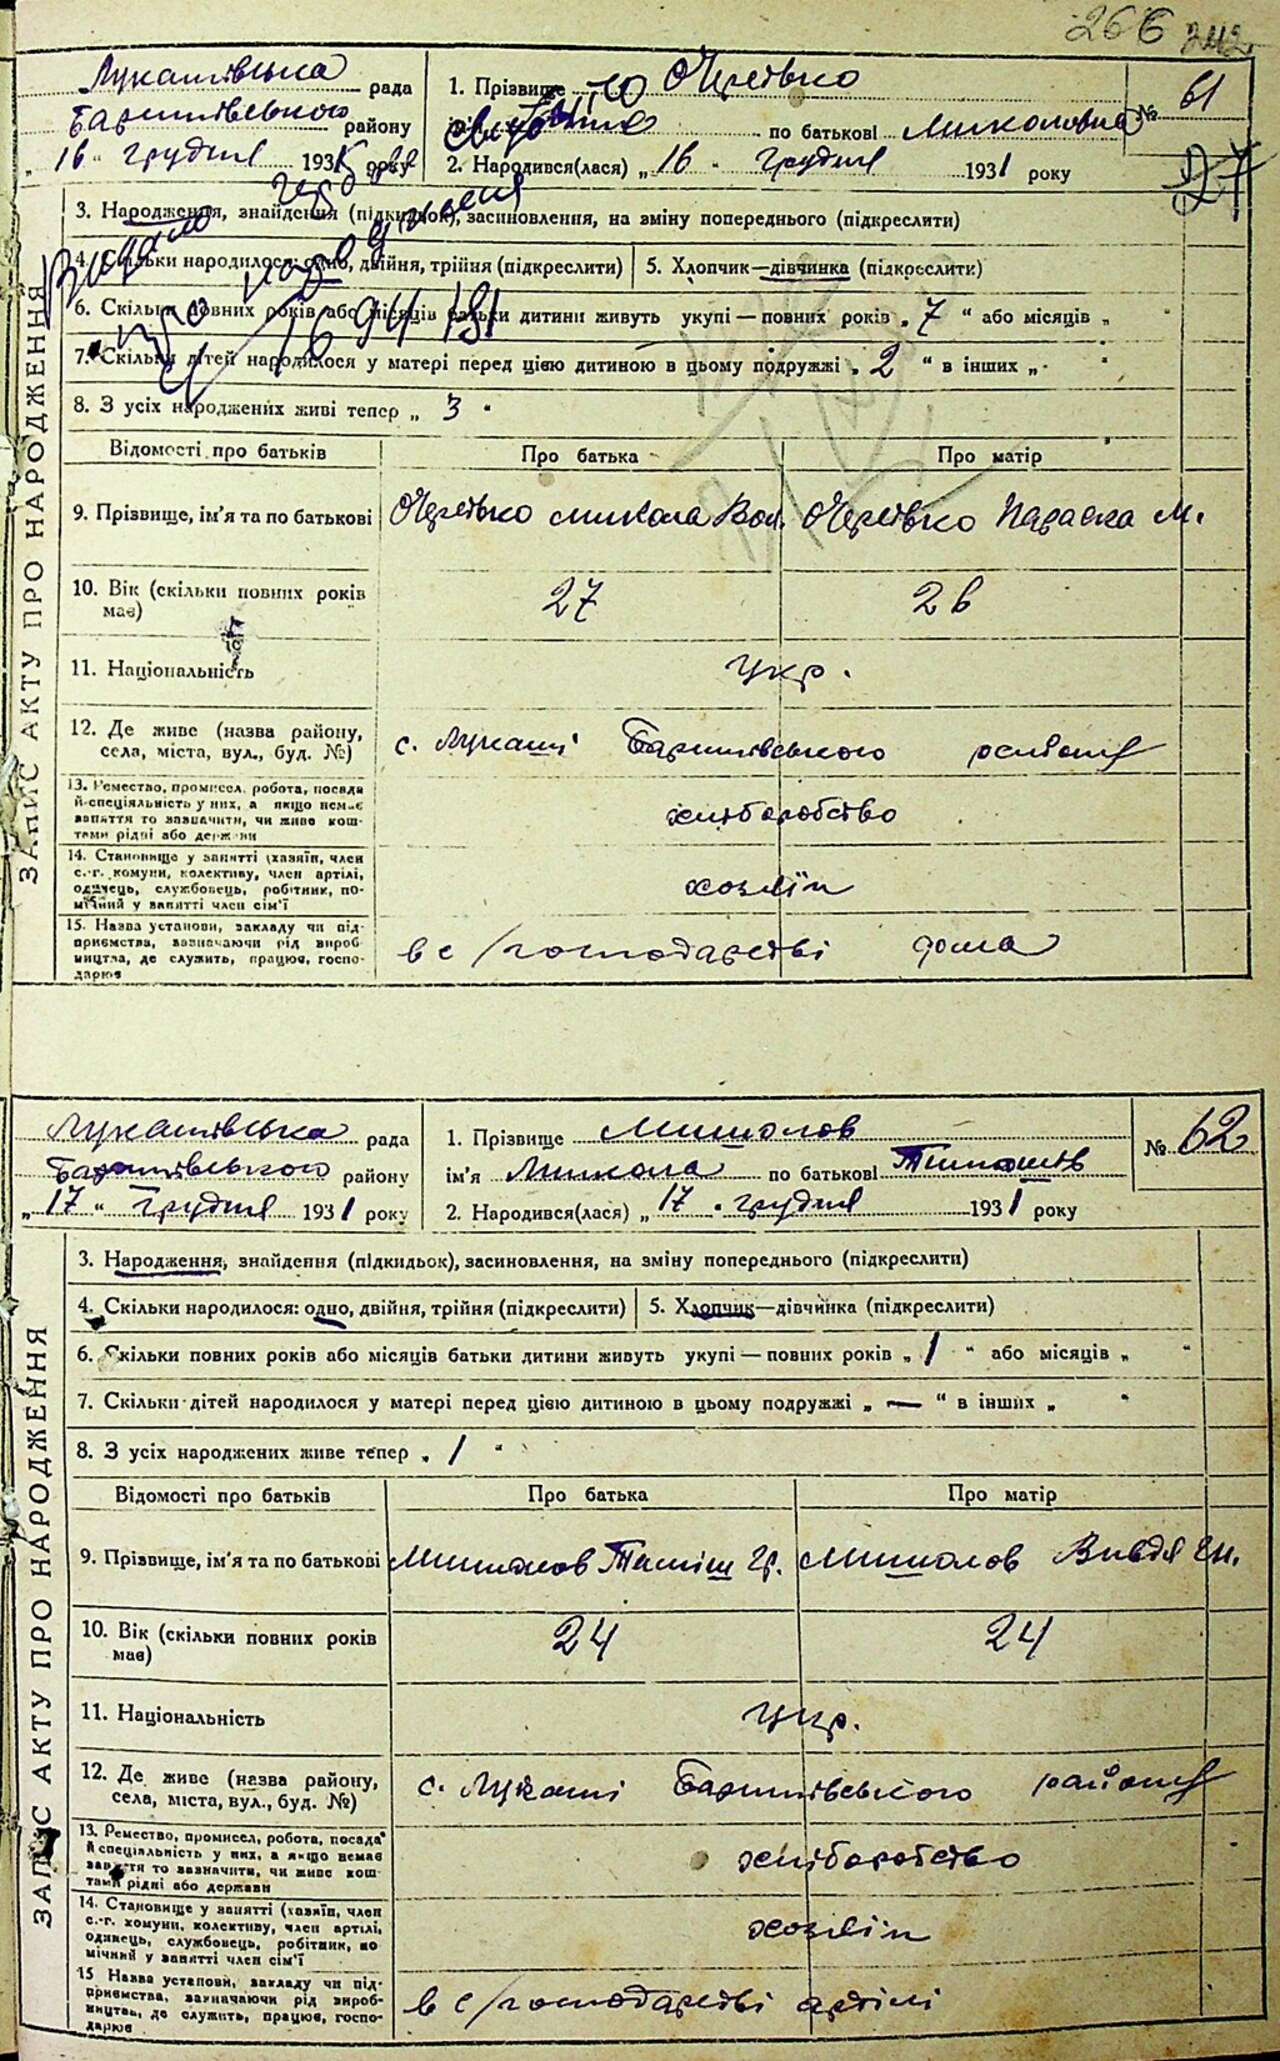 266
Лукашівська рада
Баришівського району
„16" грудня 1931 року
1. Прізвище Очретько
по батькові Миколаївна
2. Народився(лася) „16" грудня 1931 року
№ 61
27
ЗАПИС АКТУ ПРО НАРОДЖЕННЯ
3. Народження, знайдення (підкидьок), засиновлення, на зміну попереднього (підкреслити)
4. Скільки народилося: одно, двійня, трійня (підкреслити) 5. Хлопчик—дівчинка (підкреслити)
6. Скільки повних років або місяців батьки дитини живуть укупі — повних років „7" або місяців „ "
7. Скільки дітей народилося у матері перед цією дитиною в цьому подружжі „2" в інших „ "
8. З усіх народжених живі тепер „3"
Відомості про батьків Про батька Про матір
9. Прізвище, ім'я та по батькові Очретько Микола Вол. Очретько Параска М.
10. Вік (скільки повних років має) 27 26
11. Національність укр.
12. Де живе (назва району, села, міста, вул., буд. №) с. Лукаші Баришівського району
13. Ремество, промисел, робота, посада
й спеціяльність у них, а якщо немає
заняття то зазначити, чи живе кош-
тами рідні або держави хліборобство
14. Становище у занятті (хазяїн, член
с.-г. комуни, колективу, член артілі,
одинець, службовець, робітник, по-
мічний у занятті член сім'ї хозяїн
15. Назва установи, закладу чи під-
приємства, зазначаючи рід вироб-
ництва, де служить, працює, госпо-
дарює в с/господарстві дома
Лукашівська рада
Баришівського району
„17" грудня 1931 року
1. Прізвище Мишолов
ім'я Микола по батькові Тимошів
2. Народився(лася) „17" грудня 1931 року
№ 62
ЗАПИС АКТУ ПРО НАРОДЖЕННЯ
3. Народження, знайдення (підкидьок), засиновлення, на зміну попереднього (підкреслити)
4. Скільки народилося: одно, двійня, трійня (підкреслити) 5. Хлопчик—дівчинка (підкреслити)
6. Скільки повних років або місяців батьки дитини живуть укупі — повних років „1" або місяців „ "
7. Скільки дітей народилося у матері перед цією дитиною в цьому подружжі „—" в інших „ "
8. З усіх народжених живе тепер „1"
Відомості про батьків Про батька Про матір
9. Прізвище, ім'я та по батькові Мишолов Тиміш Гр. Мишолов Вивдя
10. Вік (скільки повних років має) 24 24
11. Національність укр.
12. Де живе (назва району, села, міста, вул., буд. №) с. Лукаші Баришівського району
13. Ремество, промисел, робота, посада
й спеціальність у них, а якщо немає
заняття то зазначити, чи живе кош-
тами рідні або держави хліборобство
14. Становище у занятті (хазяїн, член
с.-г. комуни, колективу, член артілі,
одинець, службовець, робітник, по
мічний у занятті член сім'ї хозяїн
15 Назва установи, закладу чи під-
приємства, зазначаючи рід вироб-
ництва, де служить, працює, госпо-
дарює в с/господарстві артілі